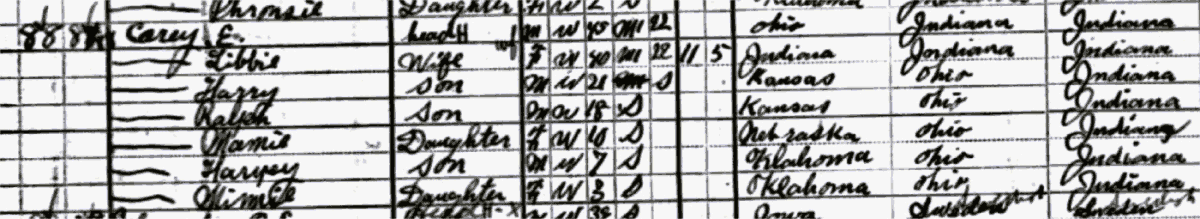 Daughter F W 2 S Oklahoma Indiana Indiana
88 88 Carey E. head H M W 45 M1 22 Ohio Indiana Indiana
Libbie Wife F W 40 M1 22 11 5 Indiana Indiana Indiana
Harry Son M W 21 S Kansas Ohio Indiana
Ralph Son M W 18 S Kansas Ohio Indiana
Mamie Daughter F W 10 S Nebraska Ohio Indiana
Harvey Son M W 7 S Oklahoma Ohio Indiana
Minnie Daughter F W 3 S Oklahoma Ohio Indiana
W 38 Iowa Sweden